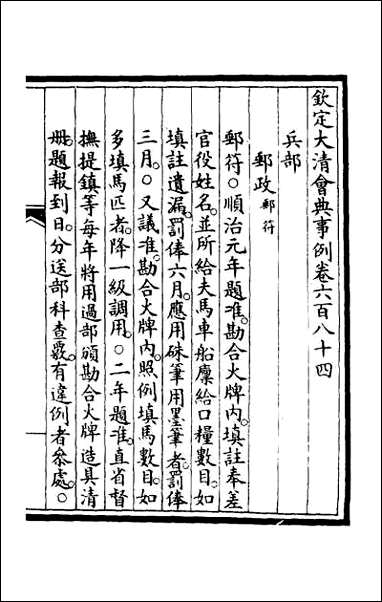 欽定大清會典事例卷六百八十四
兵部
郵政郵符
郵符○順治元年題准。勘合火牌內。填註奉差
官役姓名。並所給夫馬車船廩給口糧數目。如
填註遺漏。罰俸六月。應用硃筆用墨筆者。罰俸
三月。○又議准。勘合火牌內。照例填馬數目。如
多填馬匹者。降一級調用。○二年題准。直省督
撫提鎮等每年將用過部頒勘合火牌造具清
冊。題報到日。分送部科查覈。有違例者叅處。○